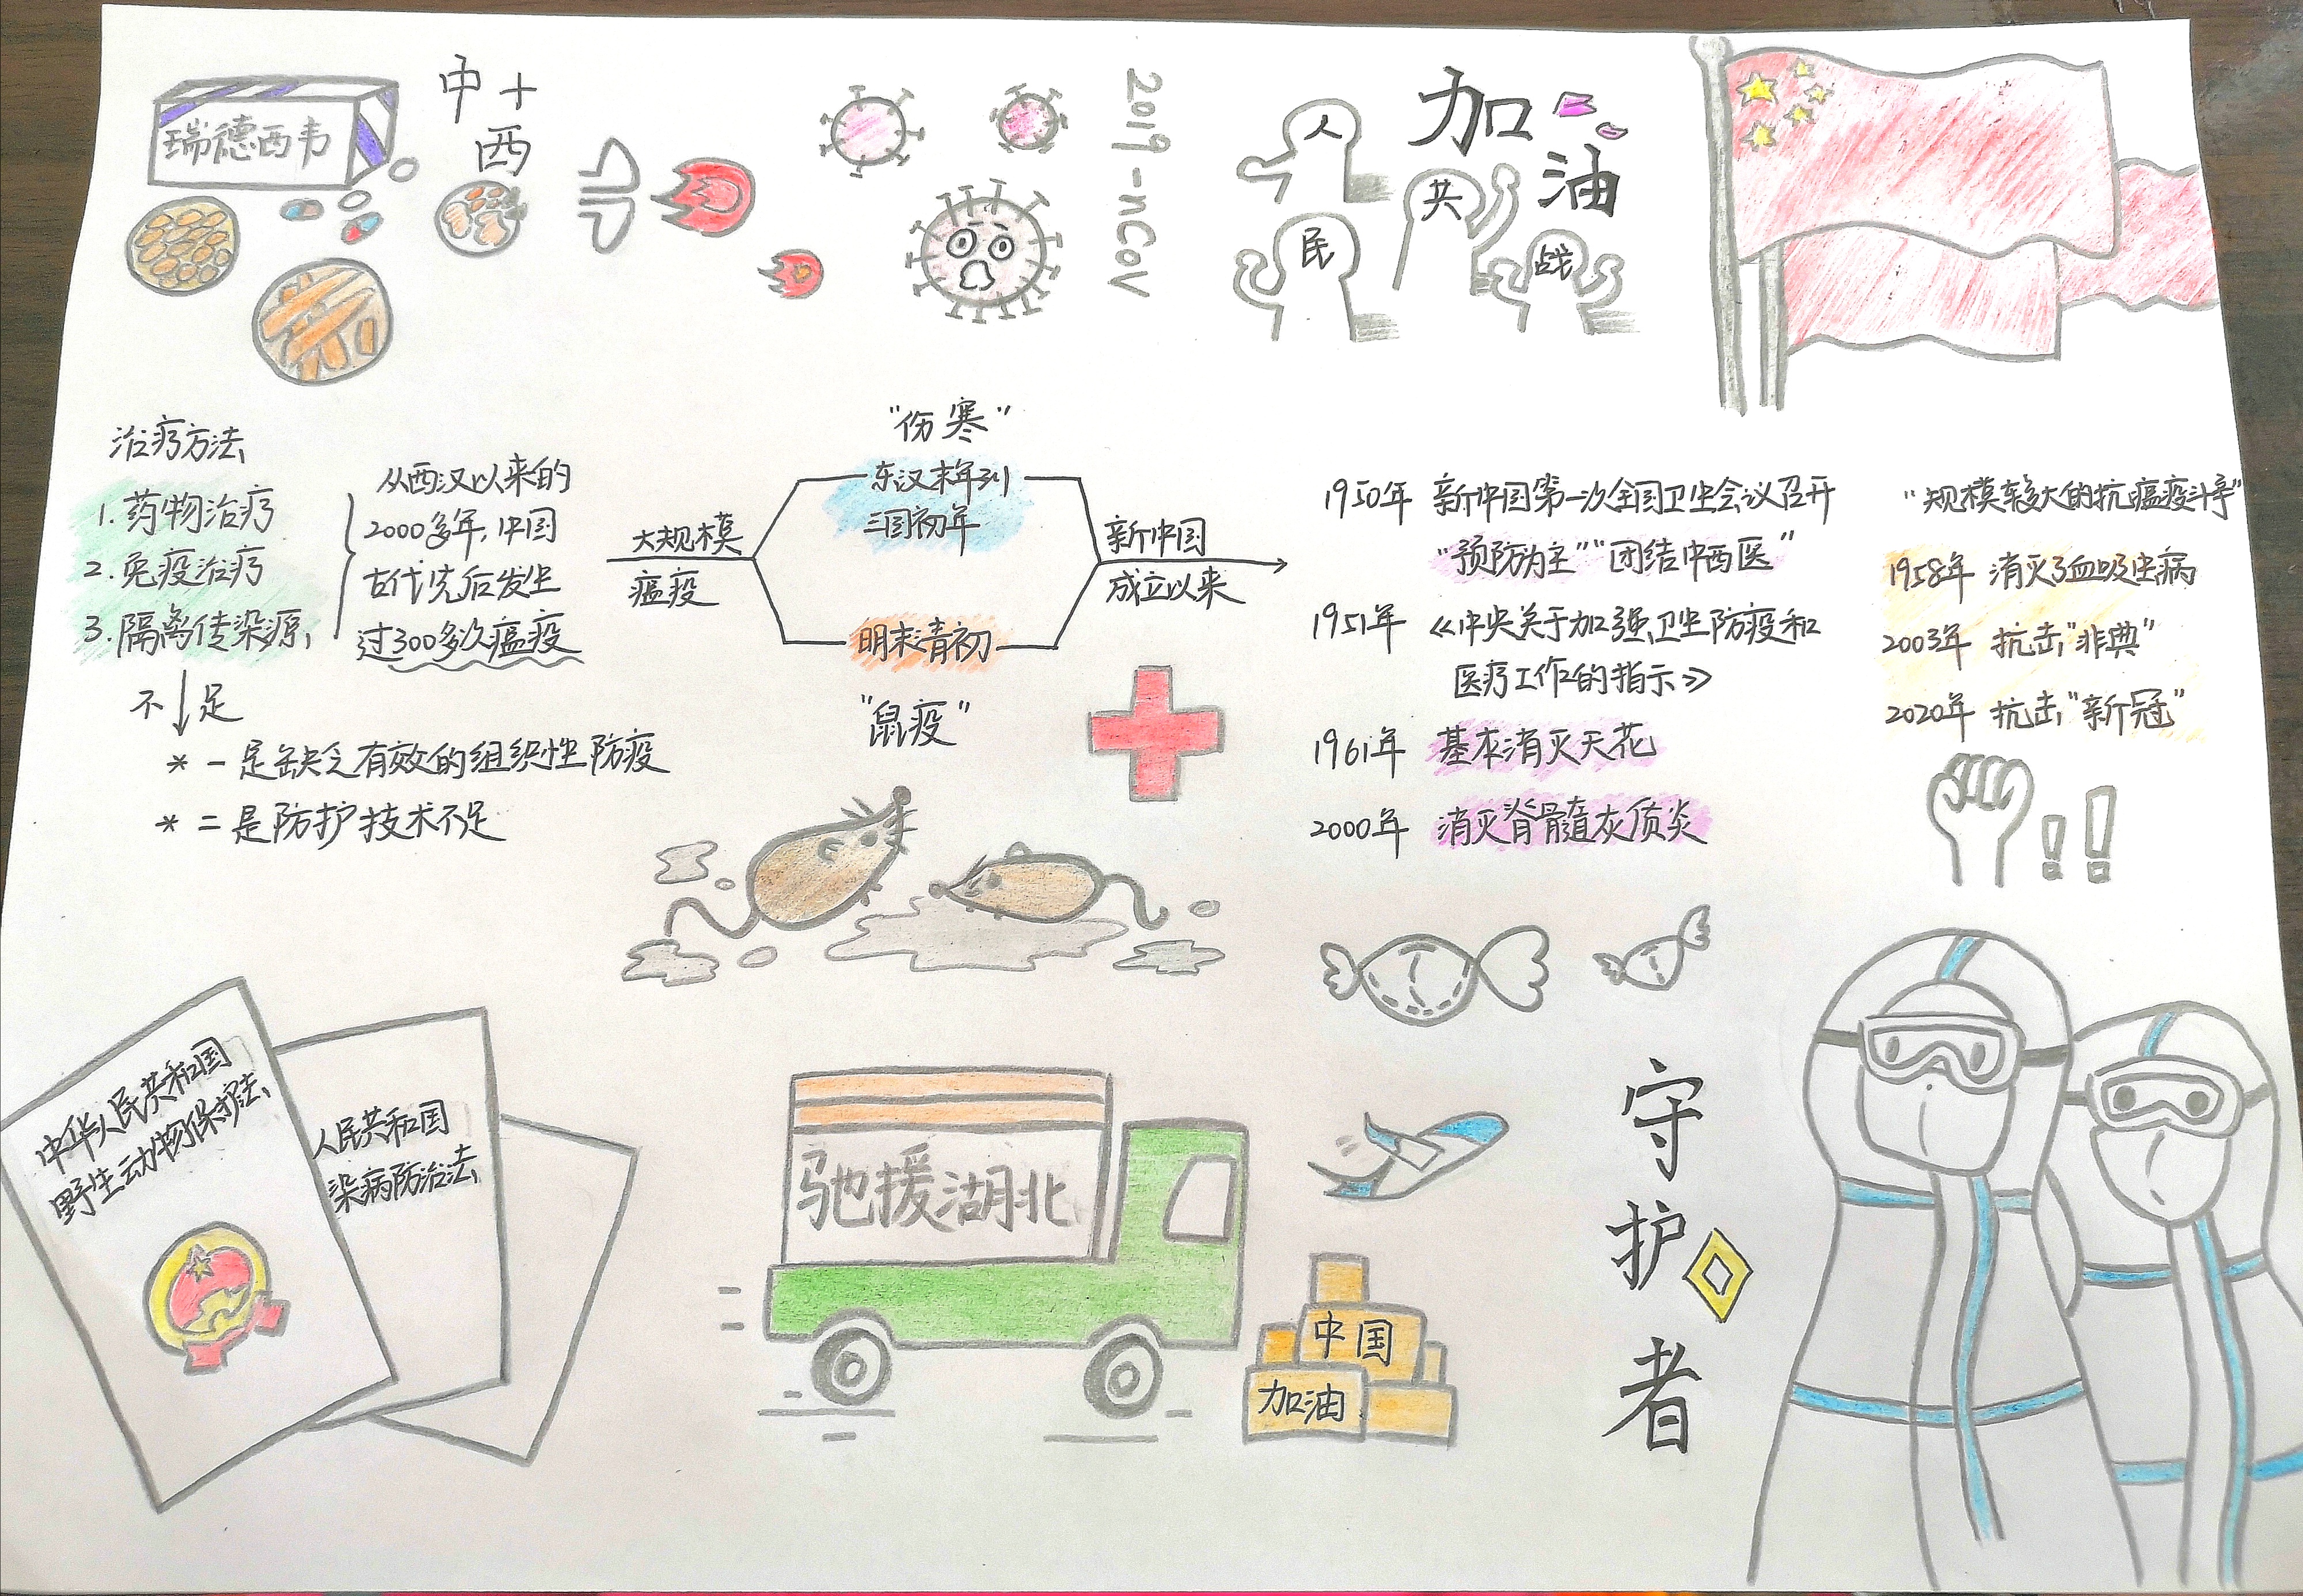 瑞德西韦
中+
西
2019-nCoV
人
民
共
战
加
油
治疗方法
1.药物治疗
2.免疫治疗
3.隔离传染源
不足
*一是缺乏有效的组织性防疫
*二是防护技术不足
从西汉以来的
2000多年,中国
古代先后发生
过300多次瘟疫
大规模
瘟疫
"伤寒"
东汉末年到
三国初年
明末清初
"鼠疫"
新中国
成立以来
1950年 新中国第一次全国卫生会议召开
"预防为主""团结中西医"
1951年《中央关于加强卫生防疫和
医疗工作的指示》
1961年 基本消灭天花
2000年 消灭脊髓灰质炎
"规模较大的抗瘟疫斗争"
1958年 消灭了血吸虫病
2003年 抗击"非典"
2020年 抗击"新冠"
!!
中华人民共和国
野生动物保护法
人民共和国
染病防治法
驰援湖北
中国
加油
守
护
者